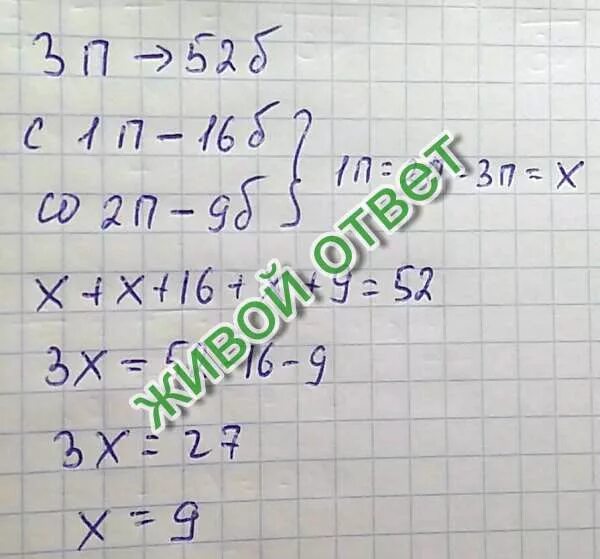 3П → 52б
с 1П - 16б
со 2П - 9б
1П = - 3П = х
х + х + 16 + + 9 = 52
3х = 16 - 9
3х = 27
х = 9
ЖИВОЙ ОТВЕТ